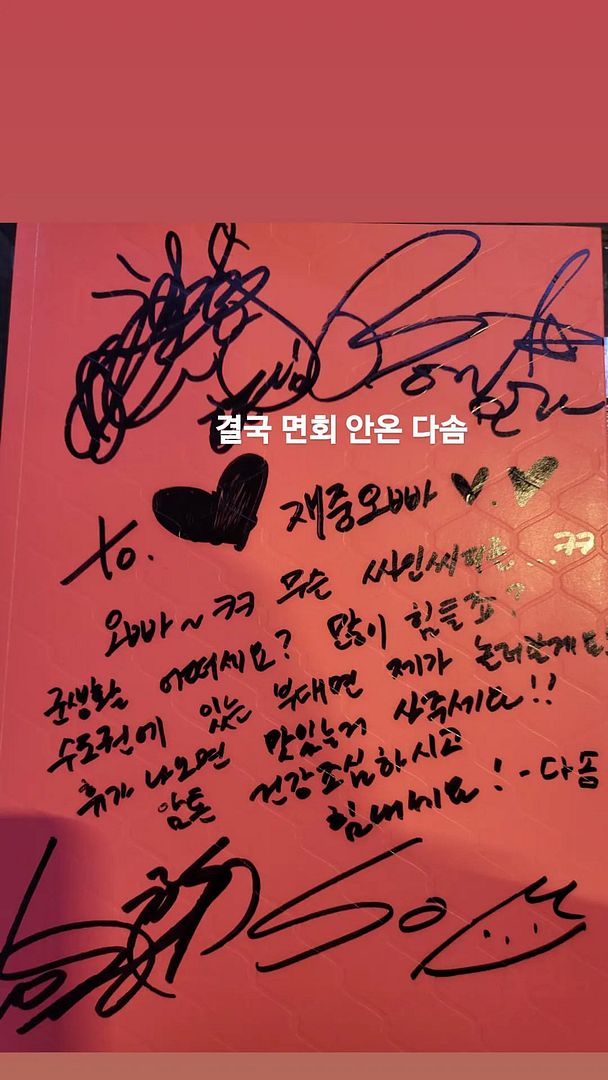 결국 면회 안온 다솜
to. 재중오빠
오빠~ ㅋㅋ 무슨 싸인씨디는...ㅋㅋ
군생활 어떠세요? 많이 힘들죠?
수도권에 있는 부대면 제가 놀러갈게요
휴가 나오면 맛있는거 사주세요!!
암튼 건강조심하시고
힘내세요! - 다솜
SO